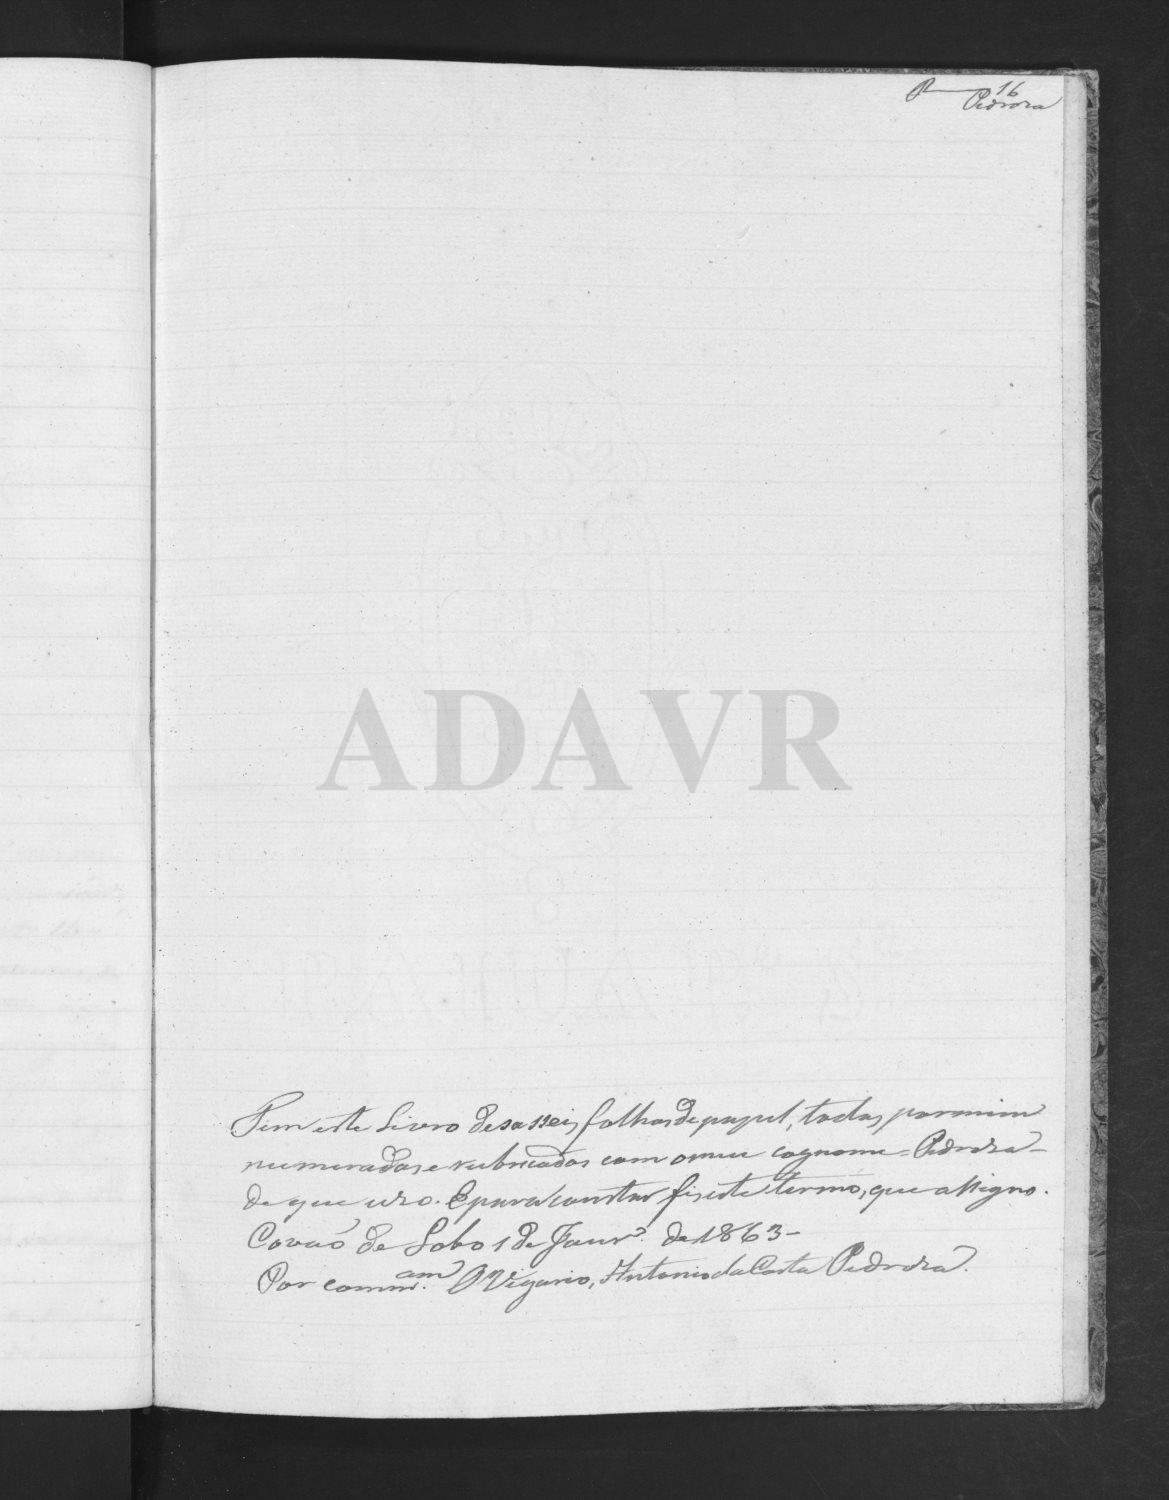 16
P Pedroza
ADAVR
Tem este Livro desasseis folhas de papel, todas por mim
numeradas, e rubricadas com o meu cognome = Pedroza =
de que uzo. E para constar fis este termo, que assigno.
Covaõ de Lobo 1 de Janrº. de 1863 -
Por commam. O Vigario, Antonio da Costa Pedroza.